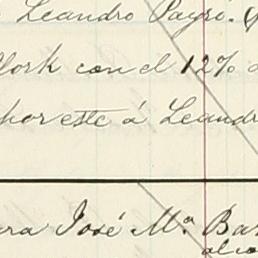 Leandro Payró.
York con el 12%
por este á Leandr
ra José Mª Ba